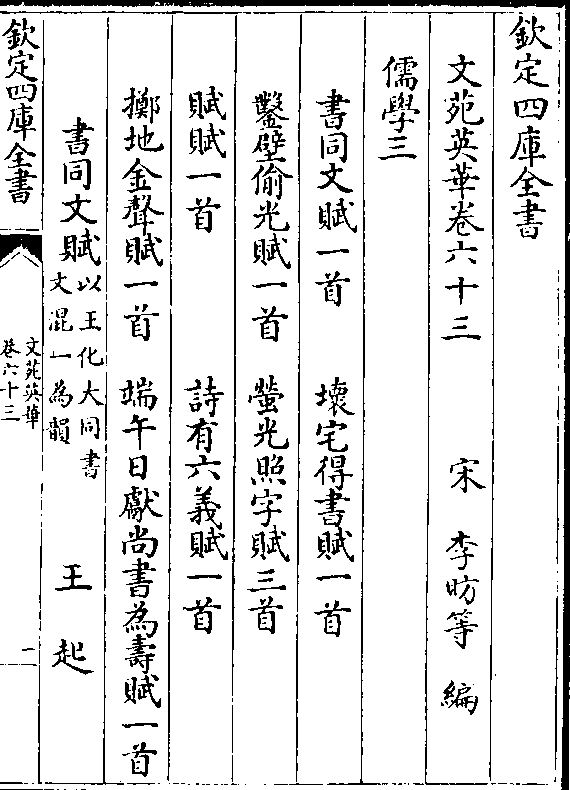 欽定四庫全書
文苑英華卷六十三
宋 李昉等 編
儒學三
書同文賦一首 壞宅得書賦一首
鑿壁偷光賦一首 螢光照字賦三首
賦賦一首 詩有六義賦一首
擲地金聲賦一首 端午日獻尚書為壽賦一首
書同文賦 以王化大同書文混一為韻 王起
欽定四庫全書
文苑英華
卷六十三
一